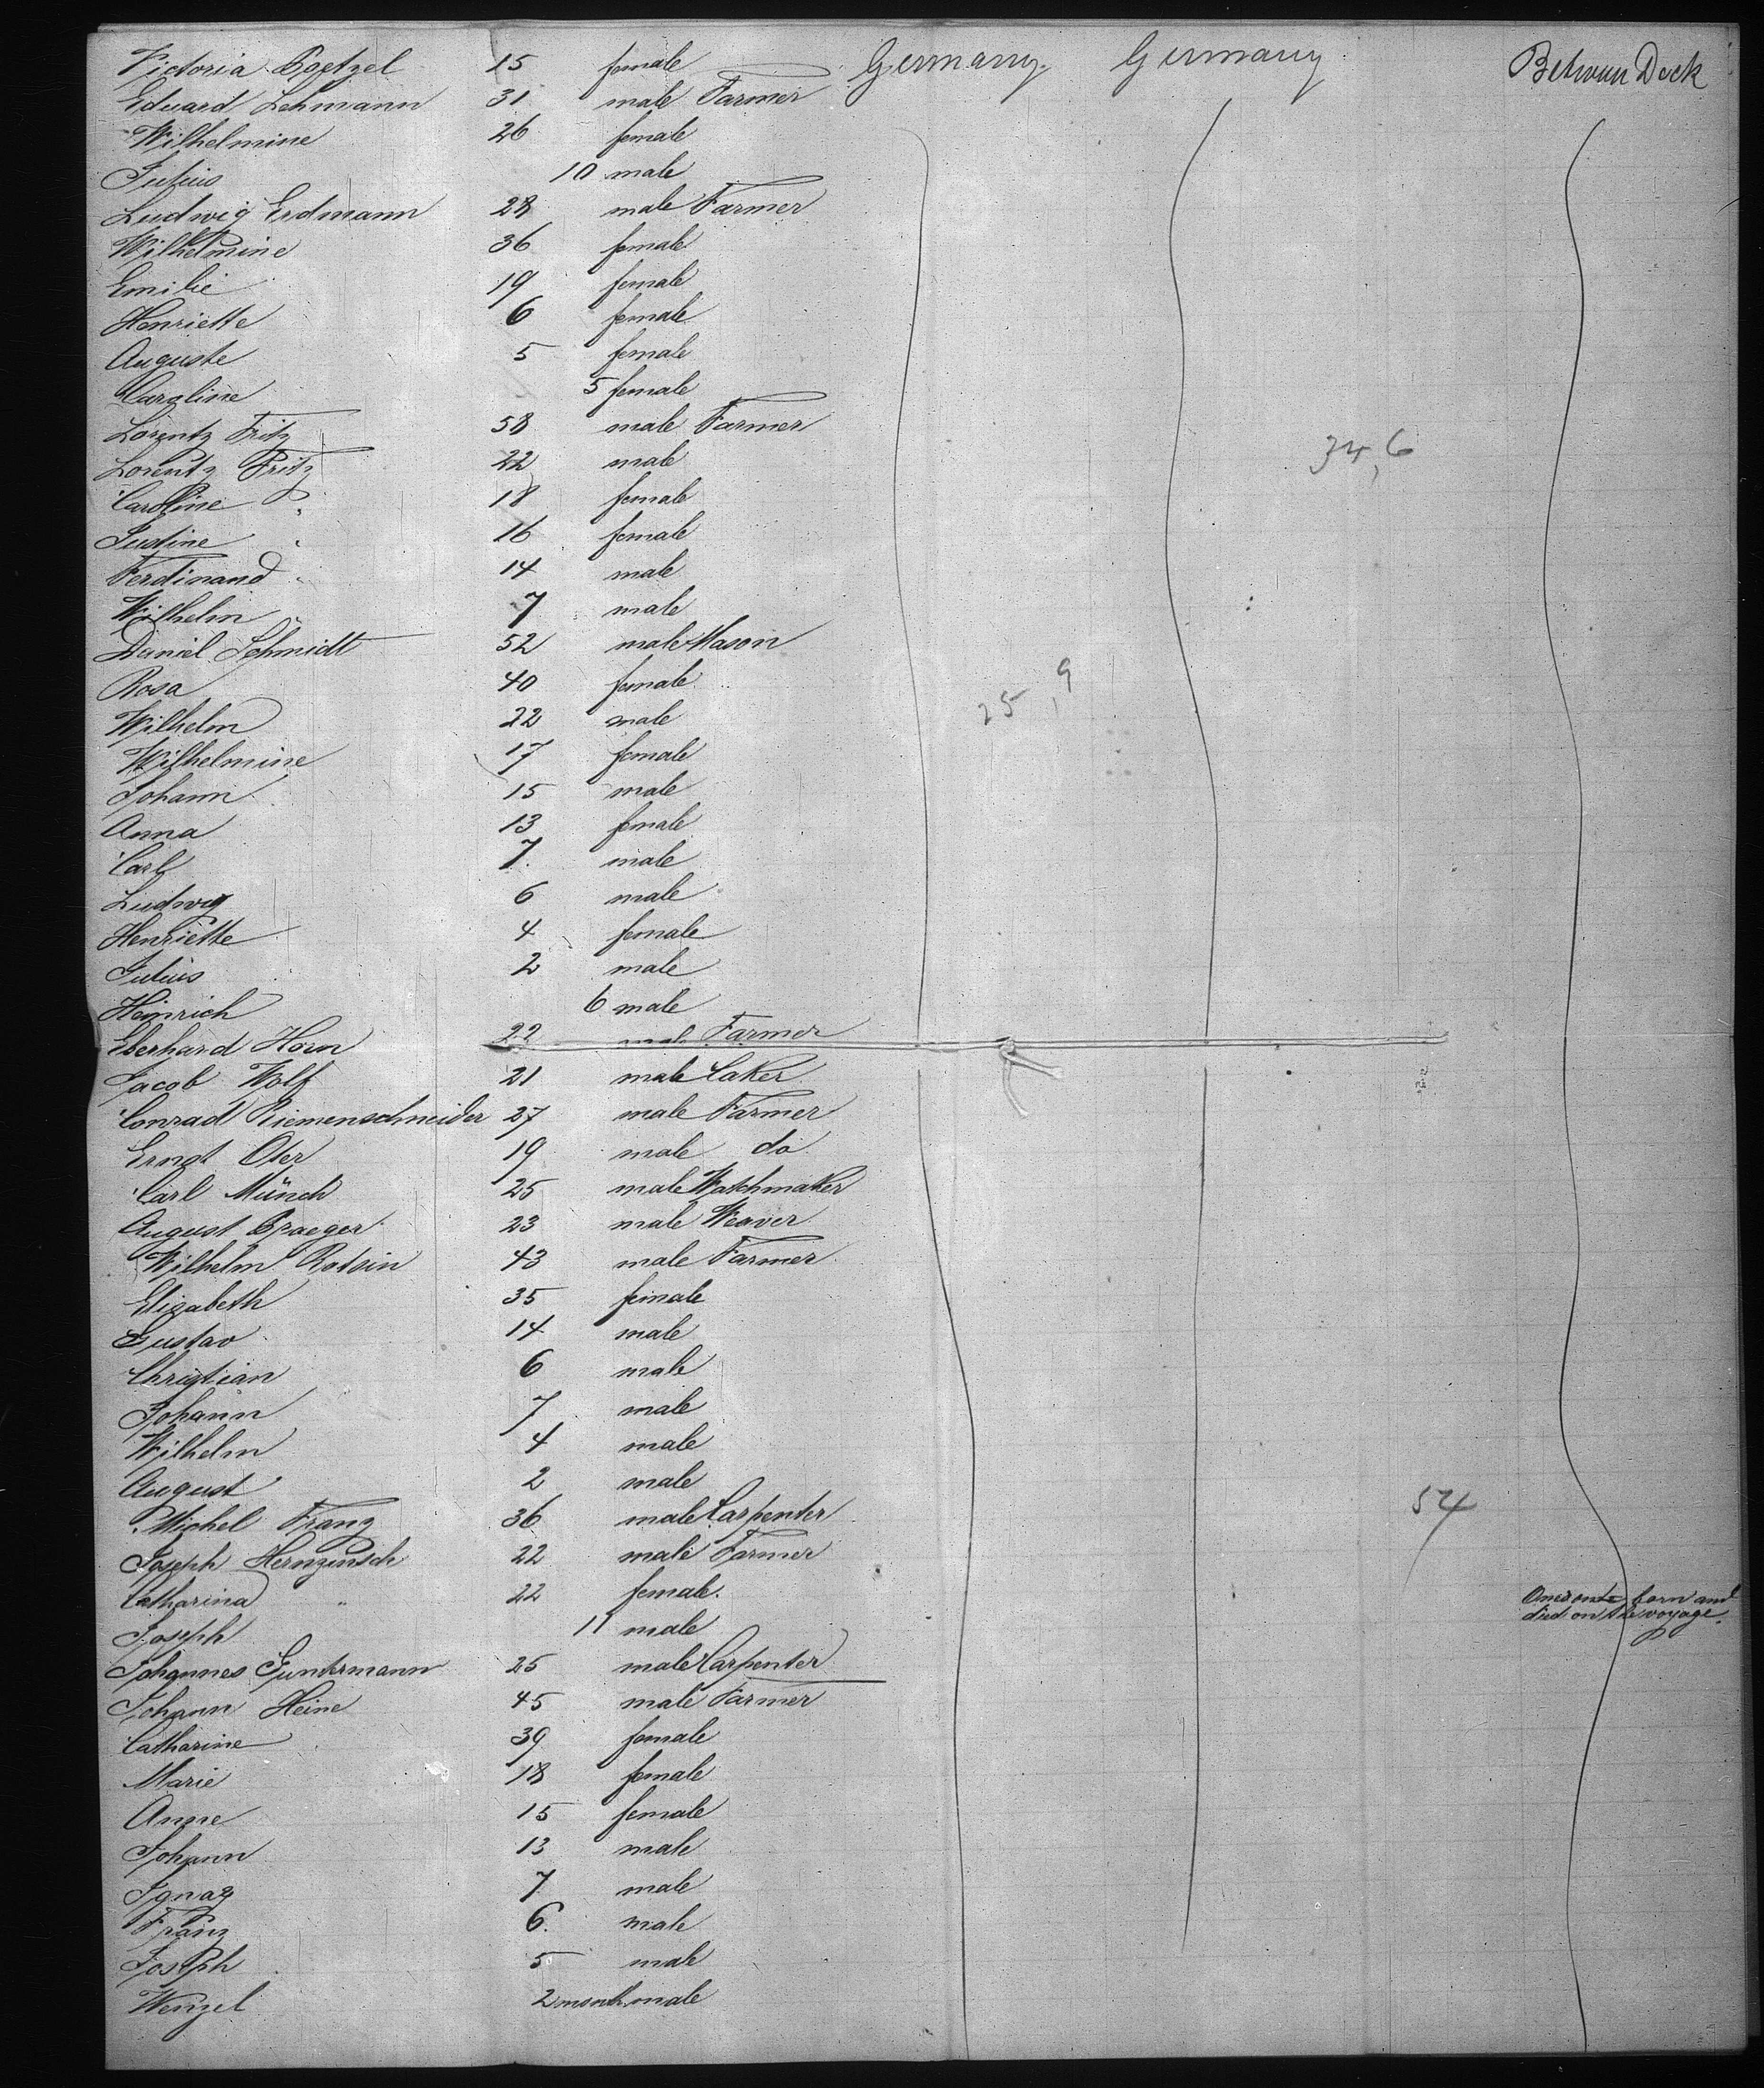 Victoria Poetzel 15 female Germany Germany Between Deck
Eduard Lehmann 31 male Farmer
Wilhelmine 26 female
Julius 10 male
Ludwig Erdmann 28 male Farmer
Wilhelmine 36 female
Emilie 19 female
Henriette 6 female
Auguste 5 female
Caroline 5 female
Lorentz Fritz 58 male Farmer
Lorentz Fritz 22 male 34,6
Caroline " 18 female
Justine " 16 female
Ferdinand " 14 male
Wilhelm " 7 male
Daniel Schmidt 52 male Mason
Rosa 40 female 25,9
Wilhelm 22 male
Wilhelmine 17 female
Johann 15 male
Anna 13 female
Carl 7 male
Ludwig 6 male
Henriette 4 female
Julius 2 male
Heinrich 6 male
Eberhard Horn 22 male Farmer
Jacob Wolf 21 male Baker
Conrad Riemenschneider 27 male Farmer
Ernst Oter 19 male do
Carl Münch 25 male Watchmaker
August Praeger 23 male Weaver
Wilhelm Rotsin 43 male Farmer
Elizabeth 35 female
Gustav 14 male
Christian 6 male
Johann 7 male
Wilhelm 4 male
August 2 male
Michel Franz 36 male Carpenter 54
Joseph 22 male Farmer
Catharina " 22 female. born and
died on the voyage.
Joseph 11 male
Johannes Guntermann 25 male Carpenter
Johann Heine 45 male Farmer
Catharine 39 female
Marie 18 female
Anne 15 female
Johann 13 male
Ignaz 7 male
Franz 6 male
Joseph 5 male
Wenzel 2 month male